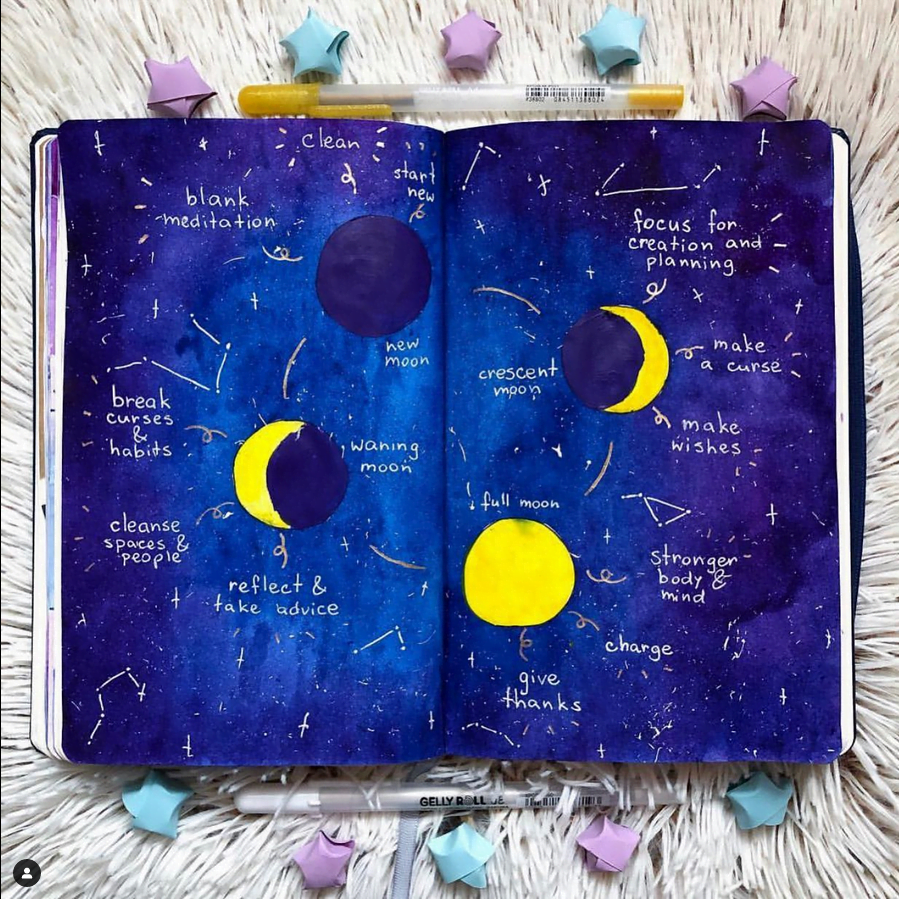 #38902 084511388024
clean
start
new
blank
meditation
new
moon
break
curses
&
habits
waning
moon
cleanse
spaces &
people
reflect &
take advice
focus for
creation and
planning
crescent
moon
make
a curse
make
wishes
full moon
stronger
body &
mind
charge
give
thanks
GELLY ROLL